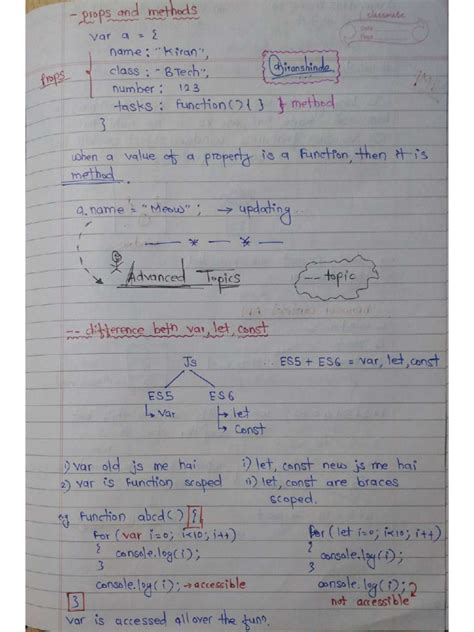 - props and methods
classmate
Date
Page
var a = {
name : "Kiran",
class : "BTech",
number : 123
tasks : function(){ } } method
}
props
@iranshinde
when a value of a property is a function, then it is
method.
a.name = "Meow" ; → updating
— — * — * — —
Advanced Topics
-- topic
-- difference betn var, let, const
Js
ES5 + ES6 = var, let, const
ES5 ES6
↳ var ↳ let
↳ const
1) var old js me hai
2) var is function scoped
i) let, const new js me hai
ii) let, const are braces
scoped.
eg function abcd() {
for (var i=0; i<10; i++)
{
console.log(i);
console.log(i); → accessible
}
for (let i=0; i<10; i++)
{
console.log(i);
}
console.log(i);
not accessible
var is accessed all over the funn.